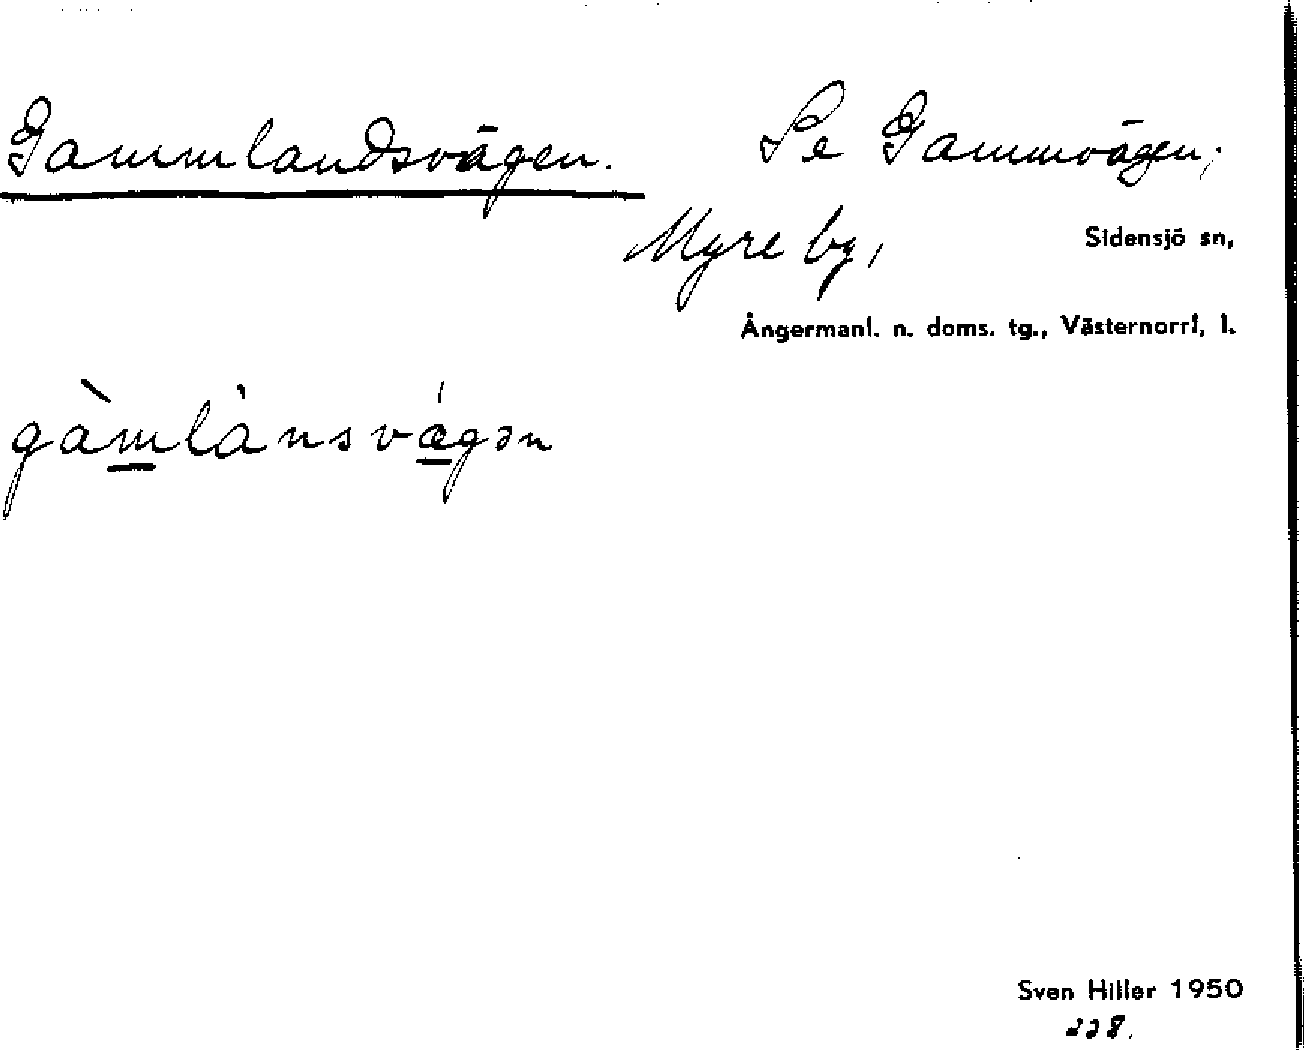 Gammlandsvägen. Se Gammvägen,
Myre by, Sidensjö sn,
Ångermanl. n. doms. tg., Västernorrl, l.
gàmlànsvǽgən
Sven Hiller 1950
228.